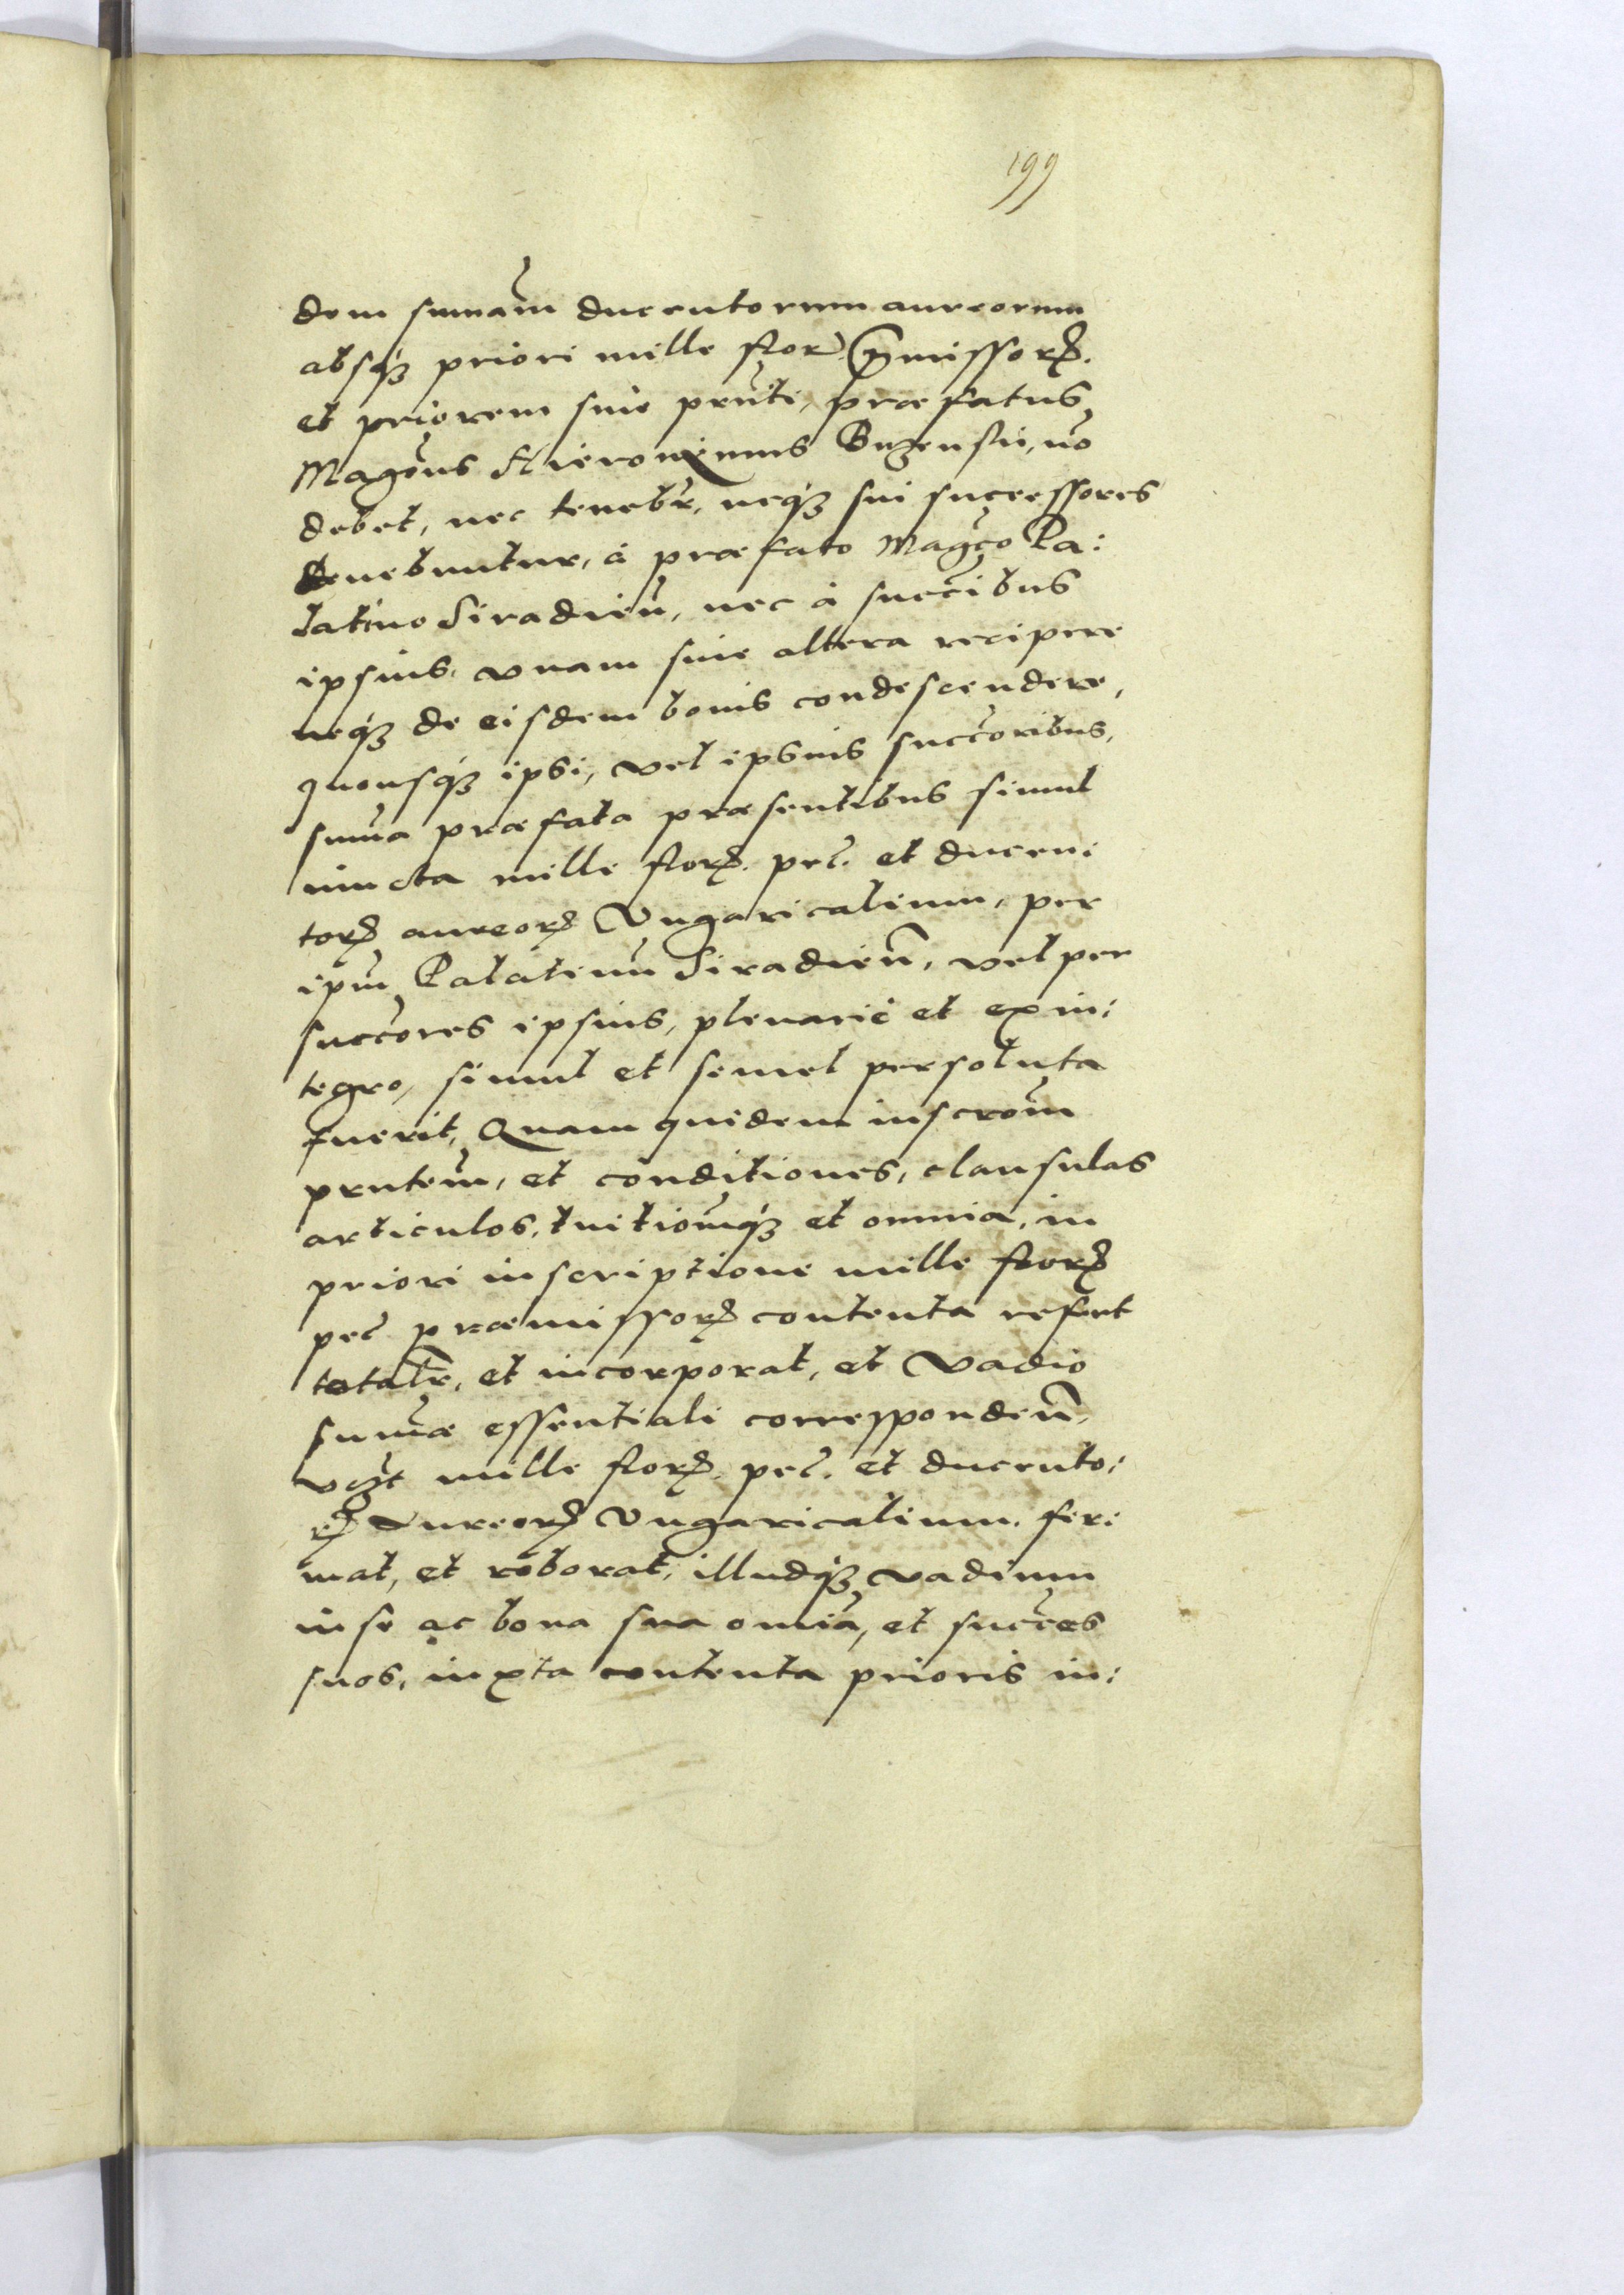 199
dem sum̃am ducentorum aureorum
absq₃ priori mille flor p̃missoꝝ.
et priorem sine pñti, præfatus
Magcus Hieronymus Buzenski, nõ
debet, nec tenebr̃, neq₃ sui successores
tenebuntur, à præfato Magco Pa:
latino Siradieñ, nec à succibus
ipsius, vnam sine altera recipere
neq₃ de eisdem bonis condescendere,
quousq₃ ipsi, vel ipsius succoribus,
sum̃a præfata præsentibus simul
iuncta mille floꝝ. pec. et ducen:
toꝝ aureoꝝ Vngaricalium, per
ipm̃ Palatinũ Siradieñ, vel per
succores ipsius, plenariè et ex in:
tegro, simul et semel persoluta
fuerit, Quam quidem inscrom̃
pñtem, et conditiones, clausulas
articulos, tuitiom̃q₃ et omnia, in
priori inscriptione mille floꝝ
pec præmissoꝝ contenta refert
totalr̃, et incorporat, et vadio
sum̃æ essentiali correspondeñ,
vzt mille floꝝ. pec. et ducento:
ꝝ Aureoꝝ Vngaricalium. fir:
mat, et roborat, illudq₃ vadium
in se ac bona sua om̃ia, et succes
suos, iuxta contenta prioris in: